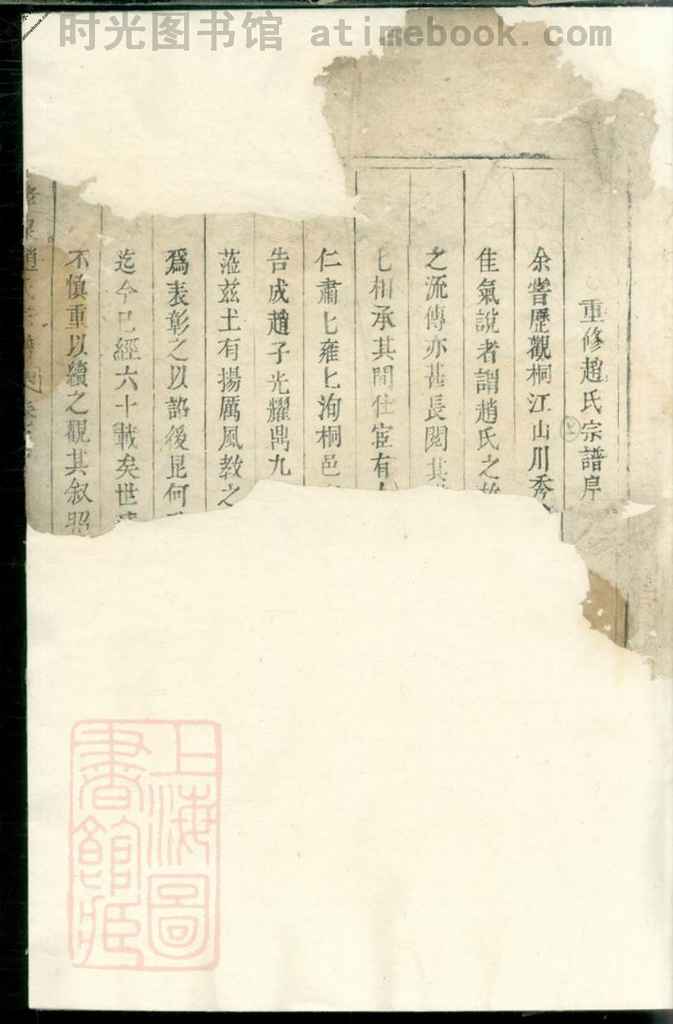 时光图书馆 atimebook.com
重修趙氏宗譜序
余嘗歷觀桐江山川秀
佳氣說者謂趙氏之
之流傳亦甚長閱其
七相承其間仕宦有
仁肅匕雍匕洵桐邑
告成趙子光耀鼎九
蒞兹土有揚厲風教之
爲表彰之以諂後昆何
迄今已經六十載矣世
不慎重以續之觀其叙照
趙氏宗譜
上海圖書館藏